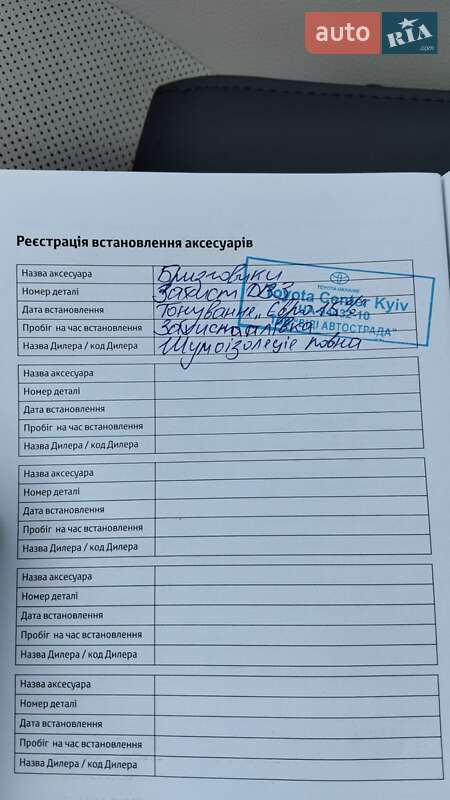 auto RIA .com
Реєстрація встановлення аксесуарів
Назва аксесуара Бризговики
Номер деталі Захист ДВЗ
Дата встановлення Тонування
Пробіг на час встановлення Захист
Назва Дилера / код Дилера Шумоізоляціє повна
TOYOTA UKRAINE
Toyota Center Kyiv
АВТОСТРАДА"
Назва аксесуара
Номер деталі
Дата встановлення
Пробіг на час встановлення
Назва Дилера / код Дилера
Назва аксесуара
Номер деталі
Дата встановлення
Пробіг на час встановлення
Назва Дилера / код Дилера
Назва аксесуара
Номер деталі
Дата встановлення
Пробіг на час встановлення
Назва Дилера / код Дилера
Назва аксесуара
Номер деталі
Дата встановлення
Пробіг на час встановлення
Назва Дилера / код Дилера